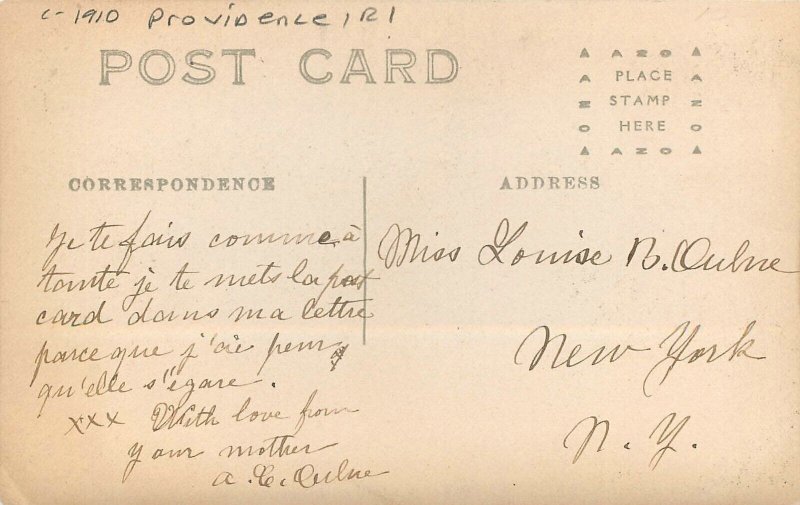 c-1910 Providence, RI
POST CARD
AZO
PLACE
STAMP
HERE
AZO
CORRESPONDENCE
ADDRESS
Je te fais comme à
tante je te mets la post
card dans ma lettre
parce que j'ai peur
qu'elle s'égare.
xxx With love from
your mother
a. E. Aulne
Miss Louise B. Aulne
New York
N. Y.